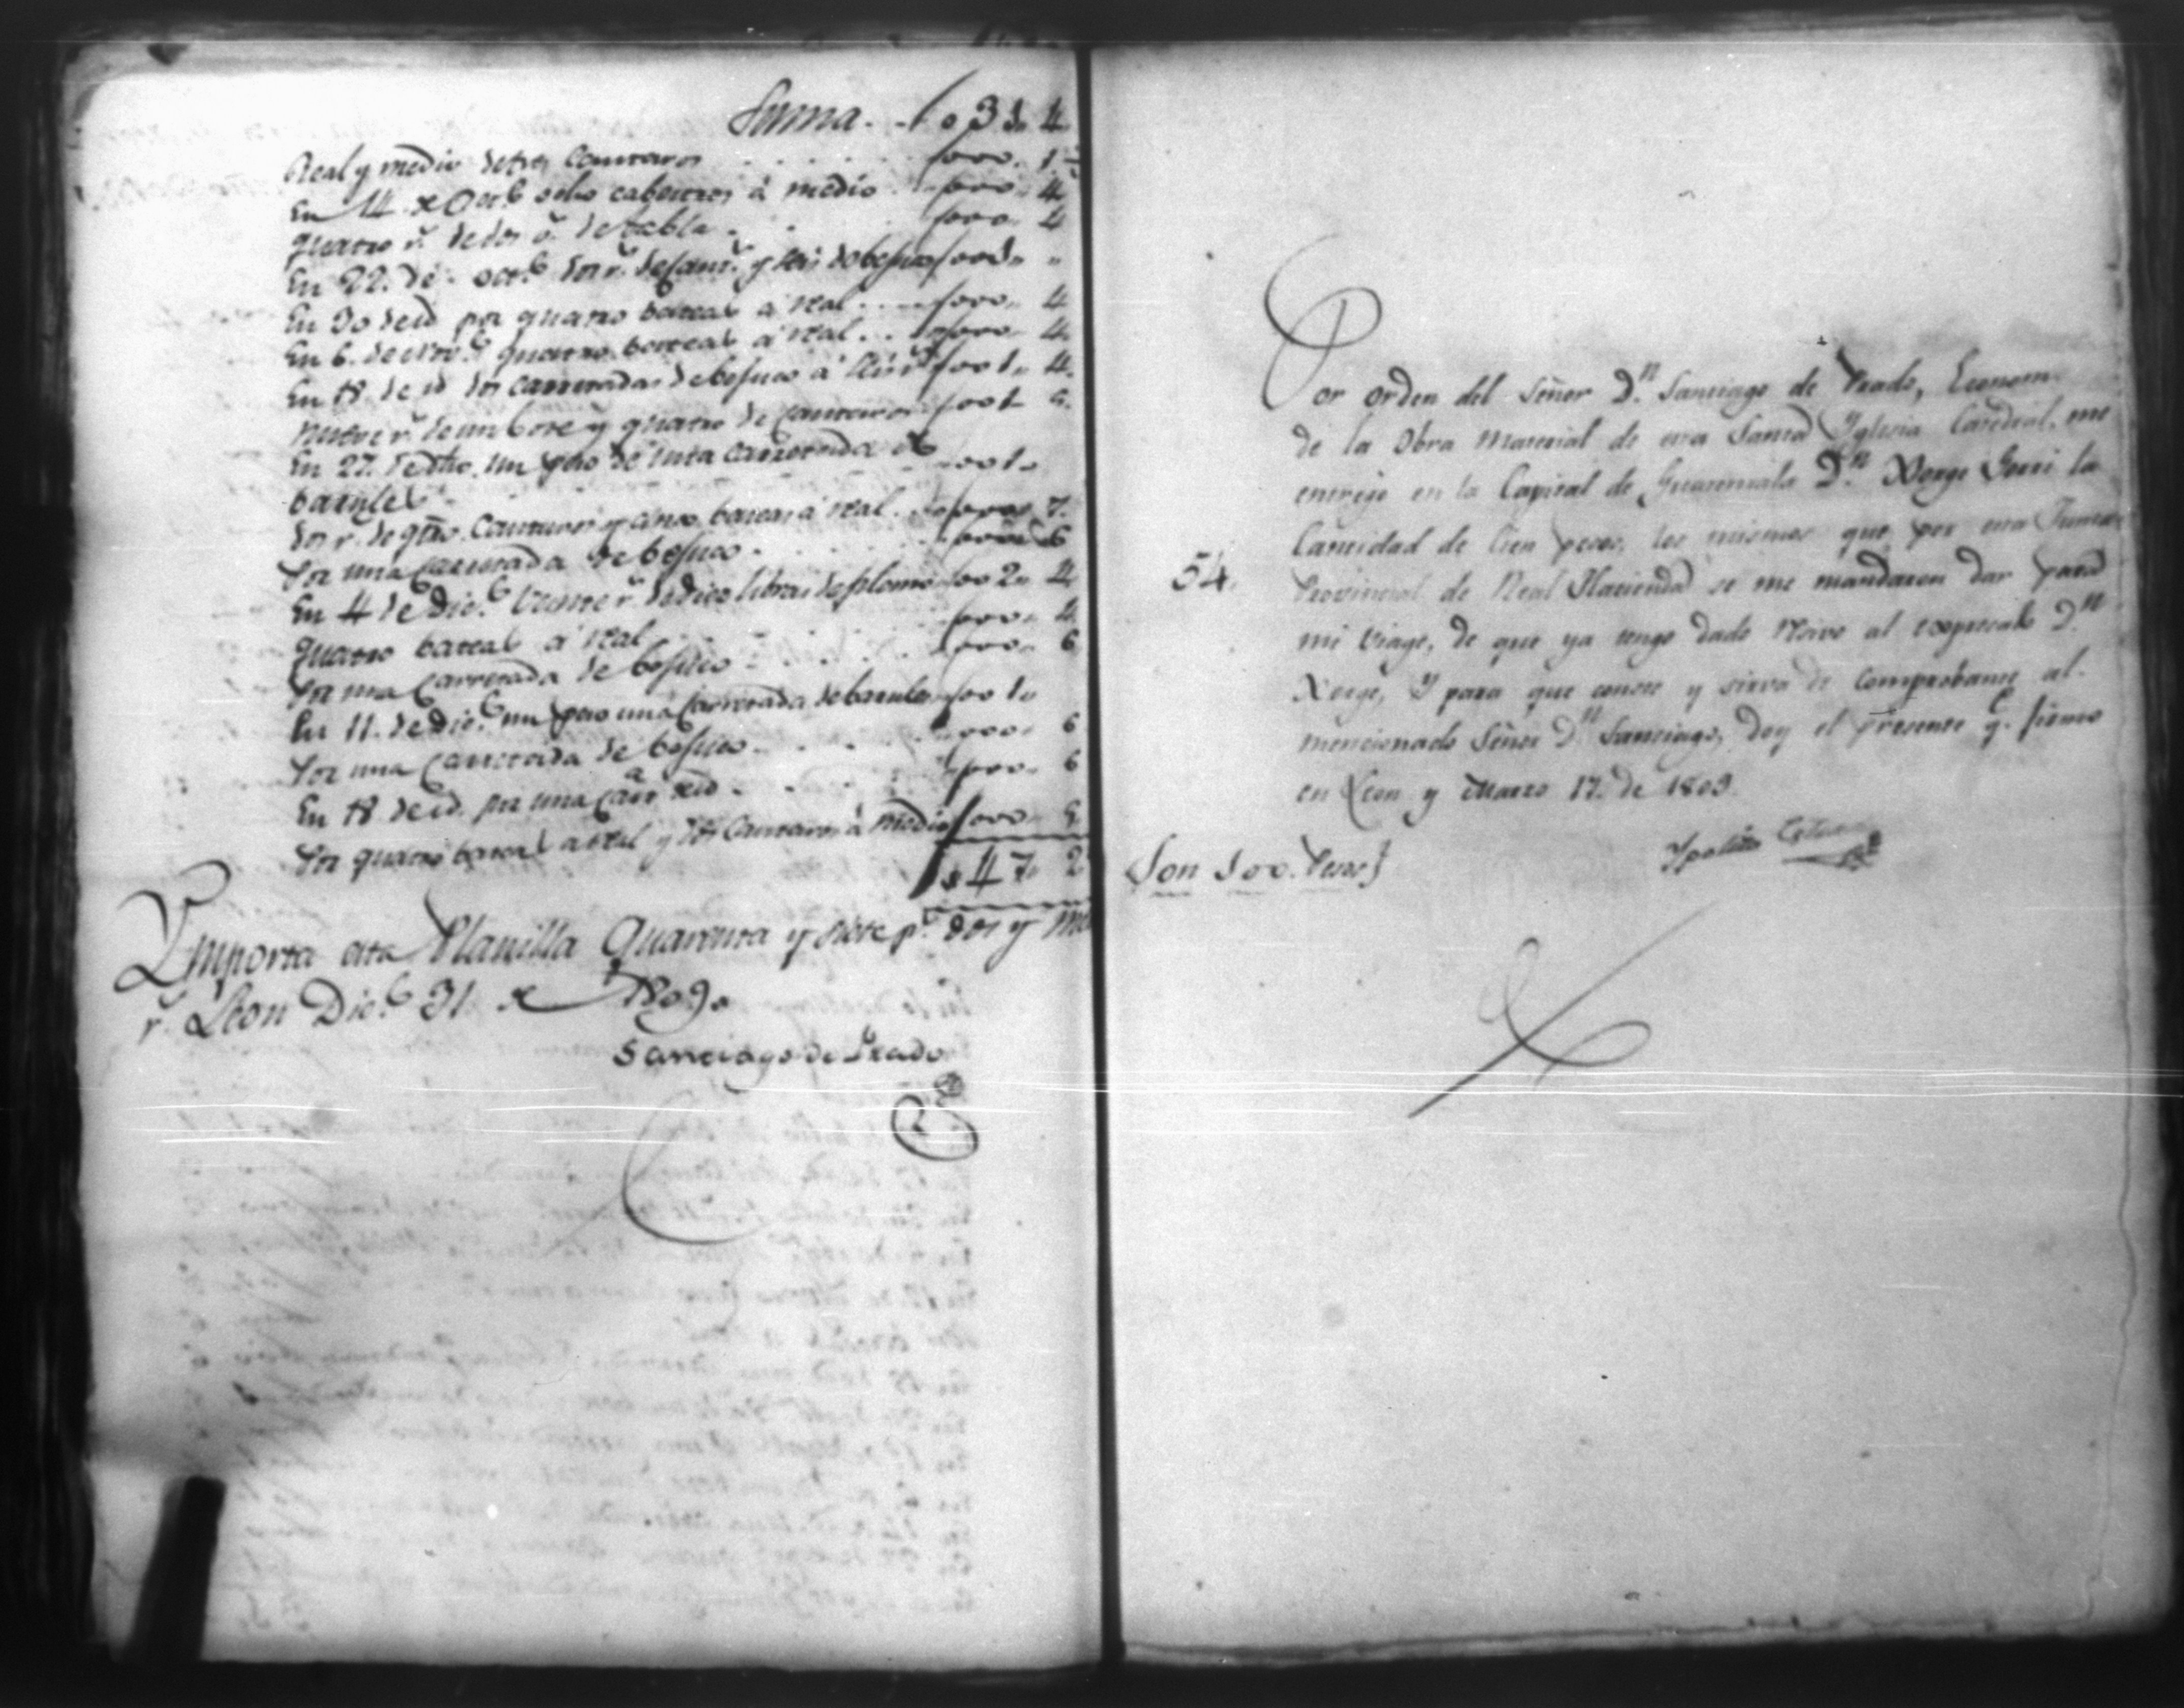 Suma. - / 0 3 1, 4
Real y medio de tres cantaros . . . . . . / 000. 1 ½
En 14 de Octe ocho cabestros á medio . . / 000.. 4
quatro rs. de dos de tabla . . . / 000.. 4
En 22. de octe dos rs. de y seis de befuco / 001.. ..
En 30 de id por quatro bateas á real . . . . / 000.. 4
En 6. de Nove quatro bateas á real . . . / 000.. 4.
En 18 de id dos carretadas de befuco á seis rs / 001.. 4.
nueve rs. de un bote y quatro de cantaros / 001 5.
En 27. de dho. un peso de una carretada de
barules / 001..
dos rs. de qtro. cantaros y cinco bateas á real . . / 000 7.
Por una carretada de befuco . . . . . . . / 000 6
En 4 de Dice veinte rs. de diez libras de plomo / 002.. 4.
quatro bateas á real . . . . . / 000.. 4.
Por una carretada de befuco . . . . . / 000.. 6
En 11. de Dice un peso una carretada de barules / 001..
Por una carretada de befuco . . . . . / 000.. 6
En 18 de id. por una carra de id . . . . . / 000.. 6
Por quatro bateas a real y dos cantaros á medio / 000.. 5
/ 0 4 7.. 2
Ymporta esta Planilla Quarenta y siete ps. dos y me
rs. Leon Dice 31. de 1809.
Santiago de Prado
Por orden del Señor Dn. Santiago de Prado, Econom.
de la Obra Material de esta Santa Yglesia Catedral, me
entregó en la Capital de Guatemala Dn. Xorge la
Cantidad de Cien pesos, los mismos que por esta Junta
54. Provincial de Real Hacienda se me mandaron dar para
mi viage, de que ya tengo dado Recivo al expresado Dn.
Xorge, Y para que conste y sirva de Comprobante al
mencionado Señor Dn Santiago, doy el presente qe. firmo
en Leon y Marzo 17. de 1809.
Son 100. Pesos}
Ypolito